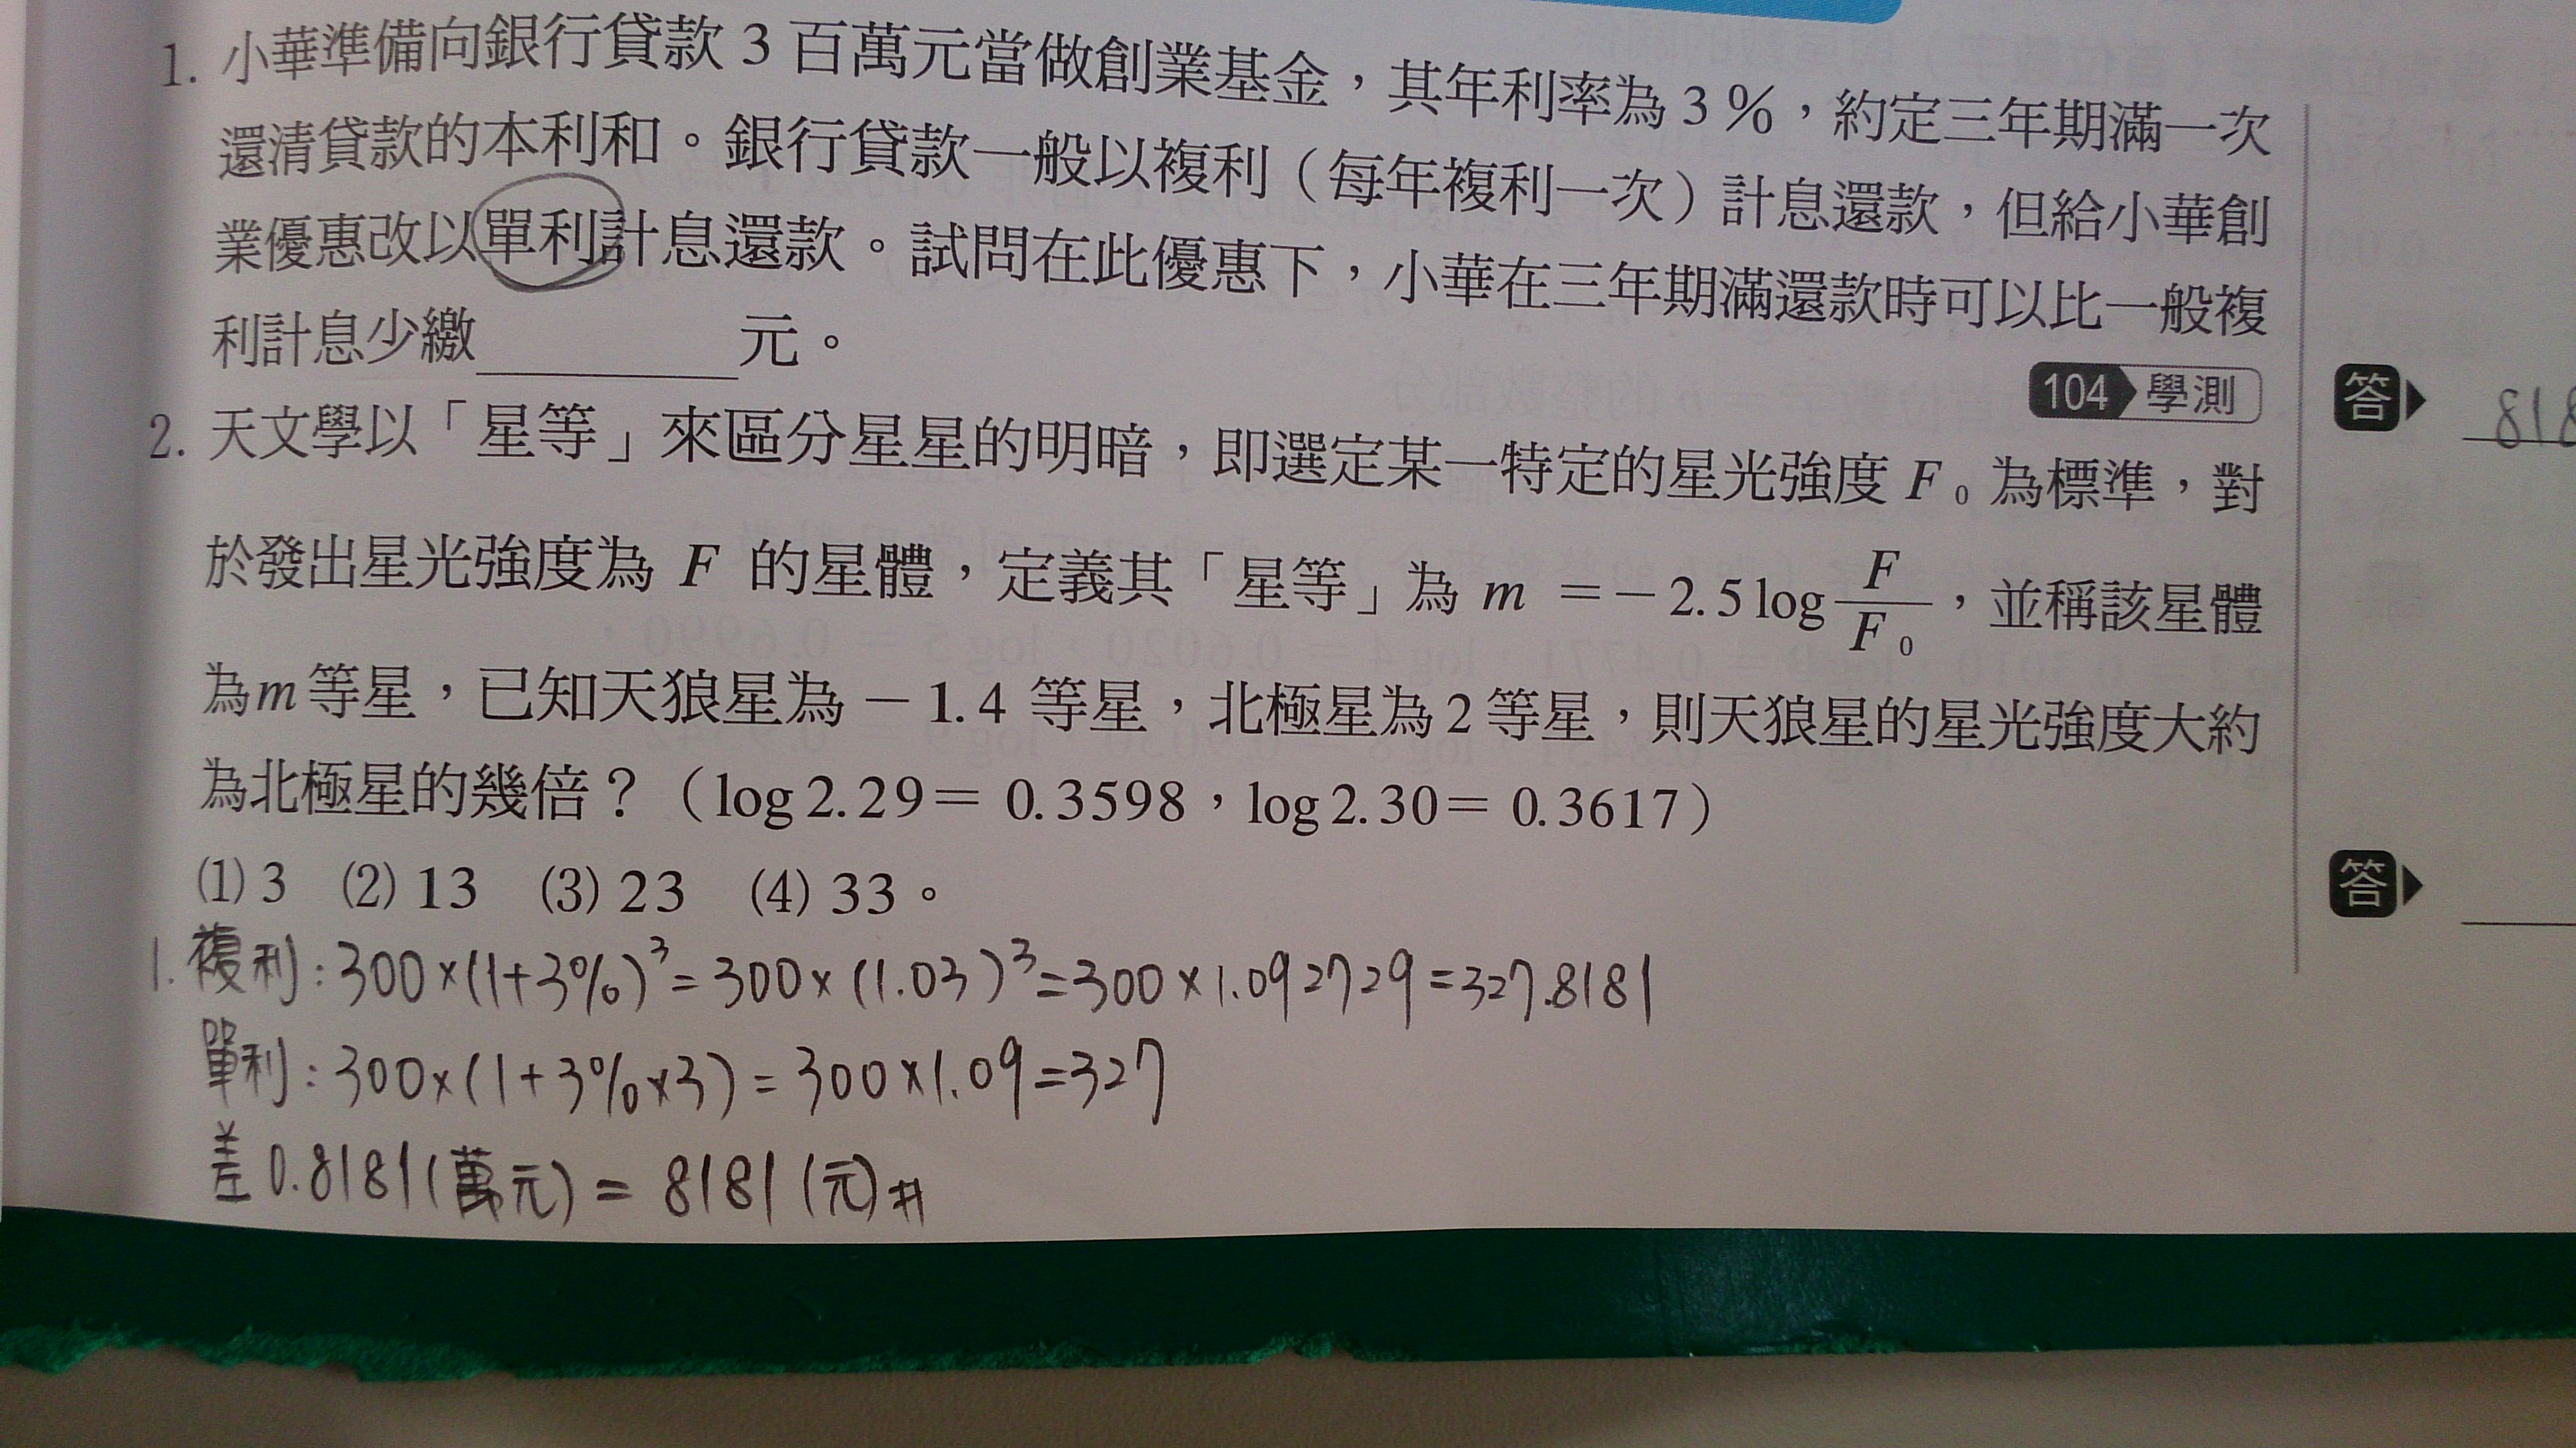 1. 小華準備向銀行貸款 3 百萬元當做創業基金，其年利率為 3 %，約定三年期滿一次
還清貸款的本利和。銀行貸款一般以複利（每年複利一次）計息還款，但給小華創
業優惠改以單利計息還款。試問在此優惠下，小華在三年期滿還款時可以比一般複
利計息少繳________元。
104 學測
答 818
2. 天文學以「星等」來區分星星的明暗，即選定某一特定的星光強度 F₀ 為標準，對
於發出星光強度為 F 的星體，定義其「星等」為 m = －2.5 log F/F₀，並稱該星體
為 m 等星，已知天狼星為 －1.4 等星，北極星為 2 等星，則天狼星的星光強度大約
為北極星的幾倍？（log 2.29 = 0.3598，log 2.30 = 0.3617）
(1) 3 (2) 13 (3) 23 (4) 33。
答
1. 複利：300×(1+3%)³=300×(1.03)³=300×1.092729=327.8181
單利：300×(1+3%×3)=300×1.09=327
差 0.8181(萬元)=8181(元)#